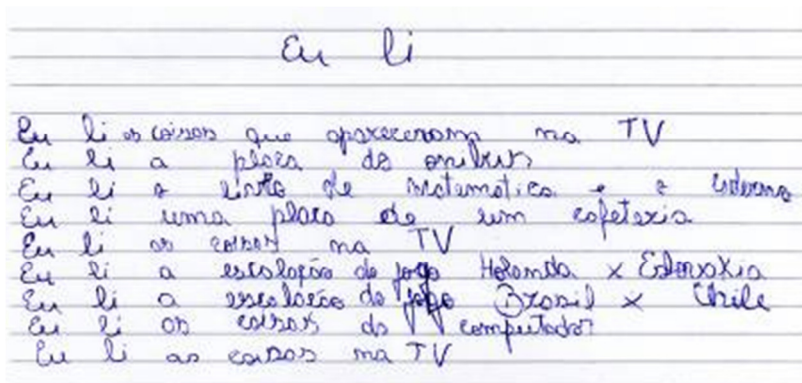 Eu li
Eu li as coisas que apareceram na TV
Eu li a placa do onibus
Eu li o livro de matematica e o caderno
Eu li uma placa de um cafeteria
Eu li as coisas na TV
Eu li a escalação do jogo Holanda x Eslovakia
Eu li a escalação do jogo Brasil x Chile
Eu li as coisas do computador
Eu li as coisas na TV